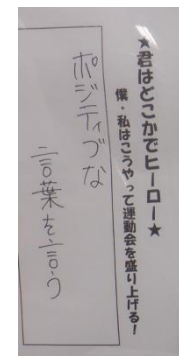 ★君はどこかでヒーロー★
僕・私はこうやって運動会を盛り上げる！
ポジティブな
言葉を言う